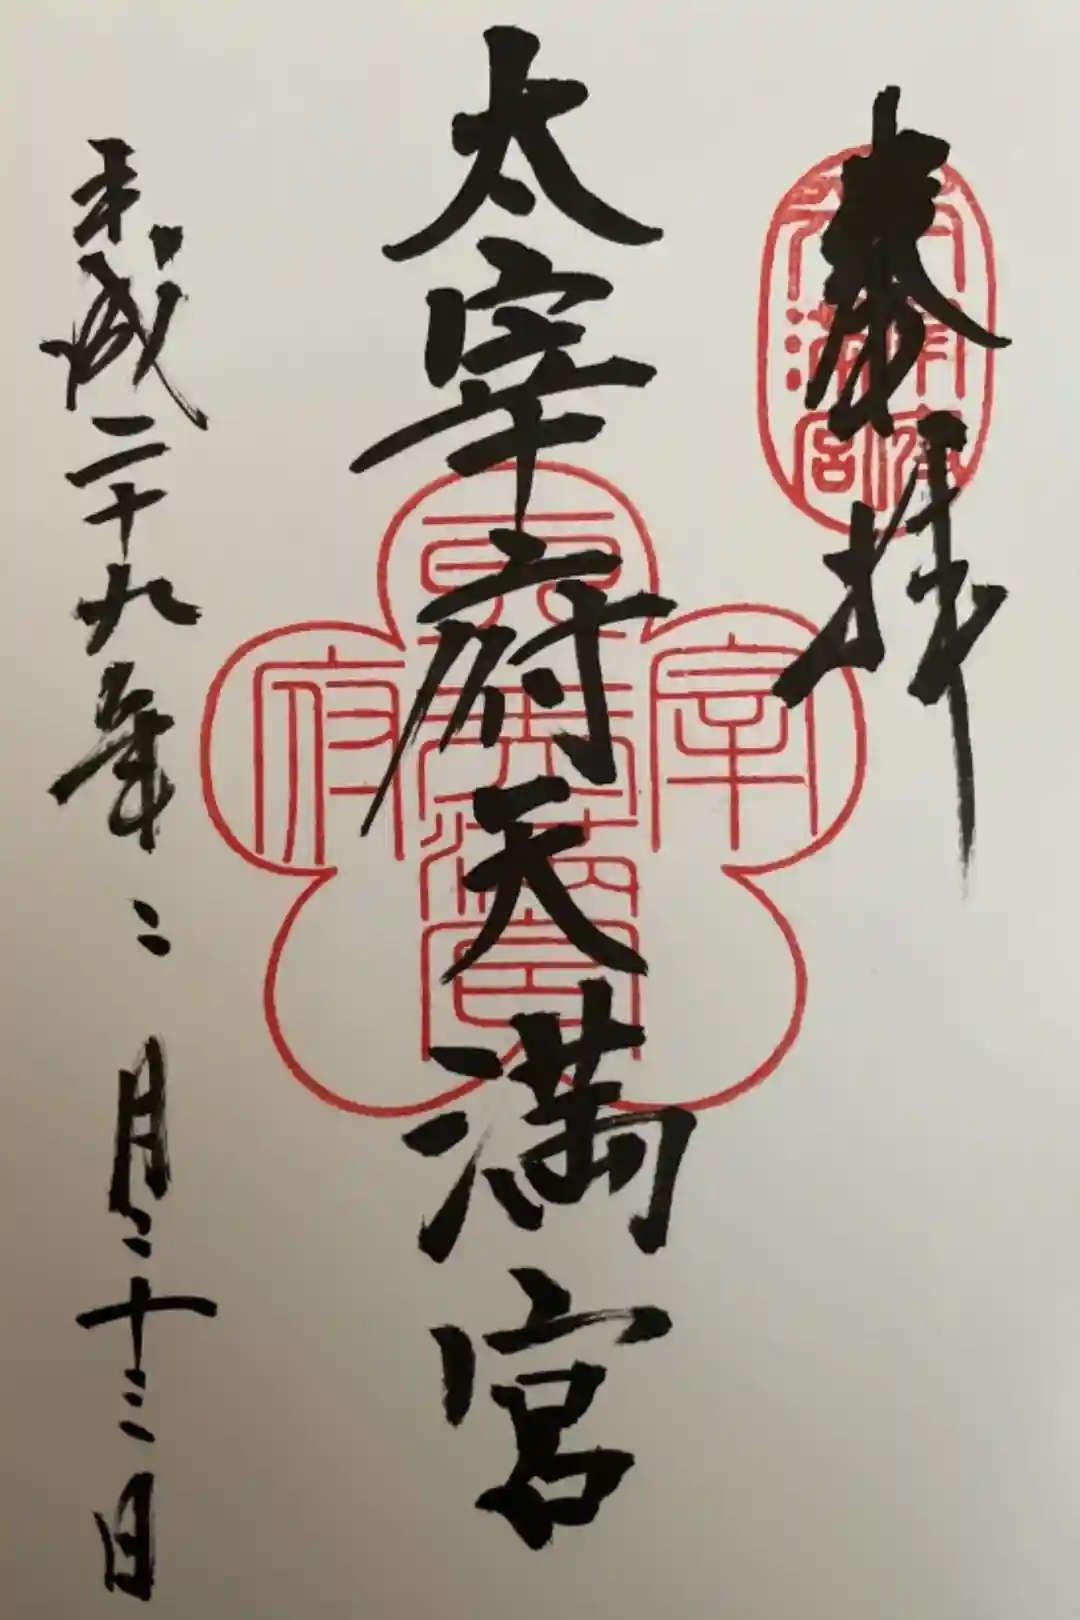 奉拝
太宰府天満宮
平成二十九年二月二十三日
天満宮
宰
府
天満宮